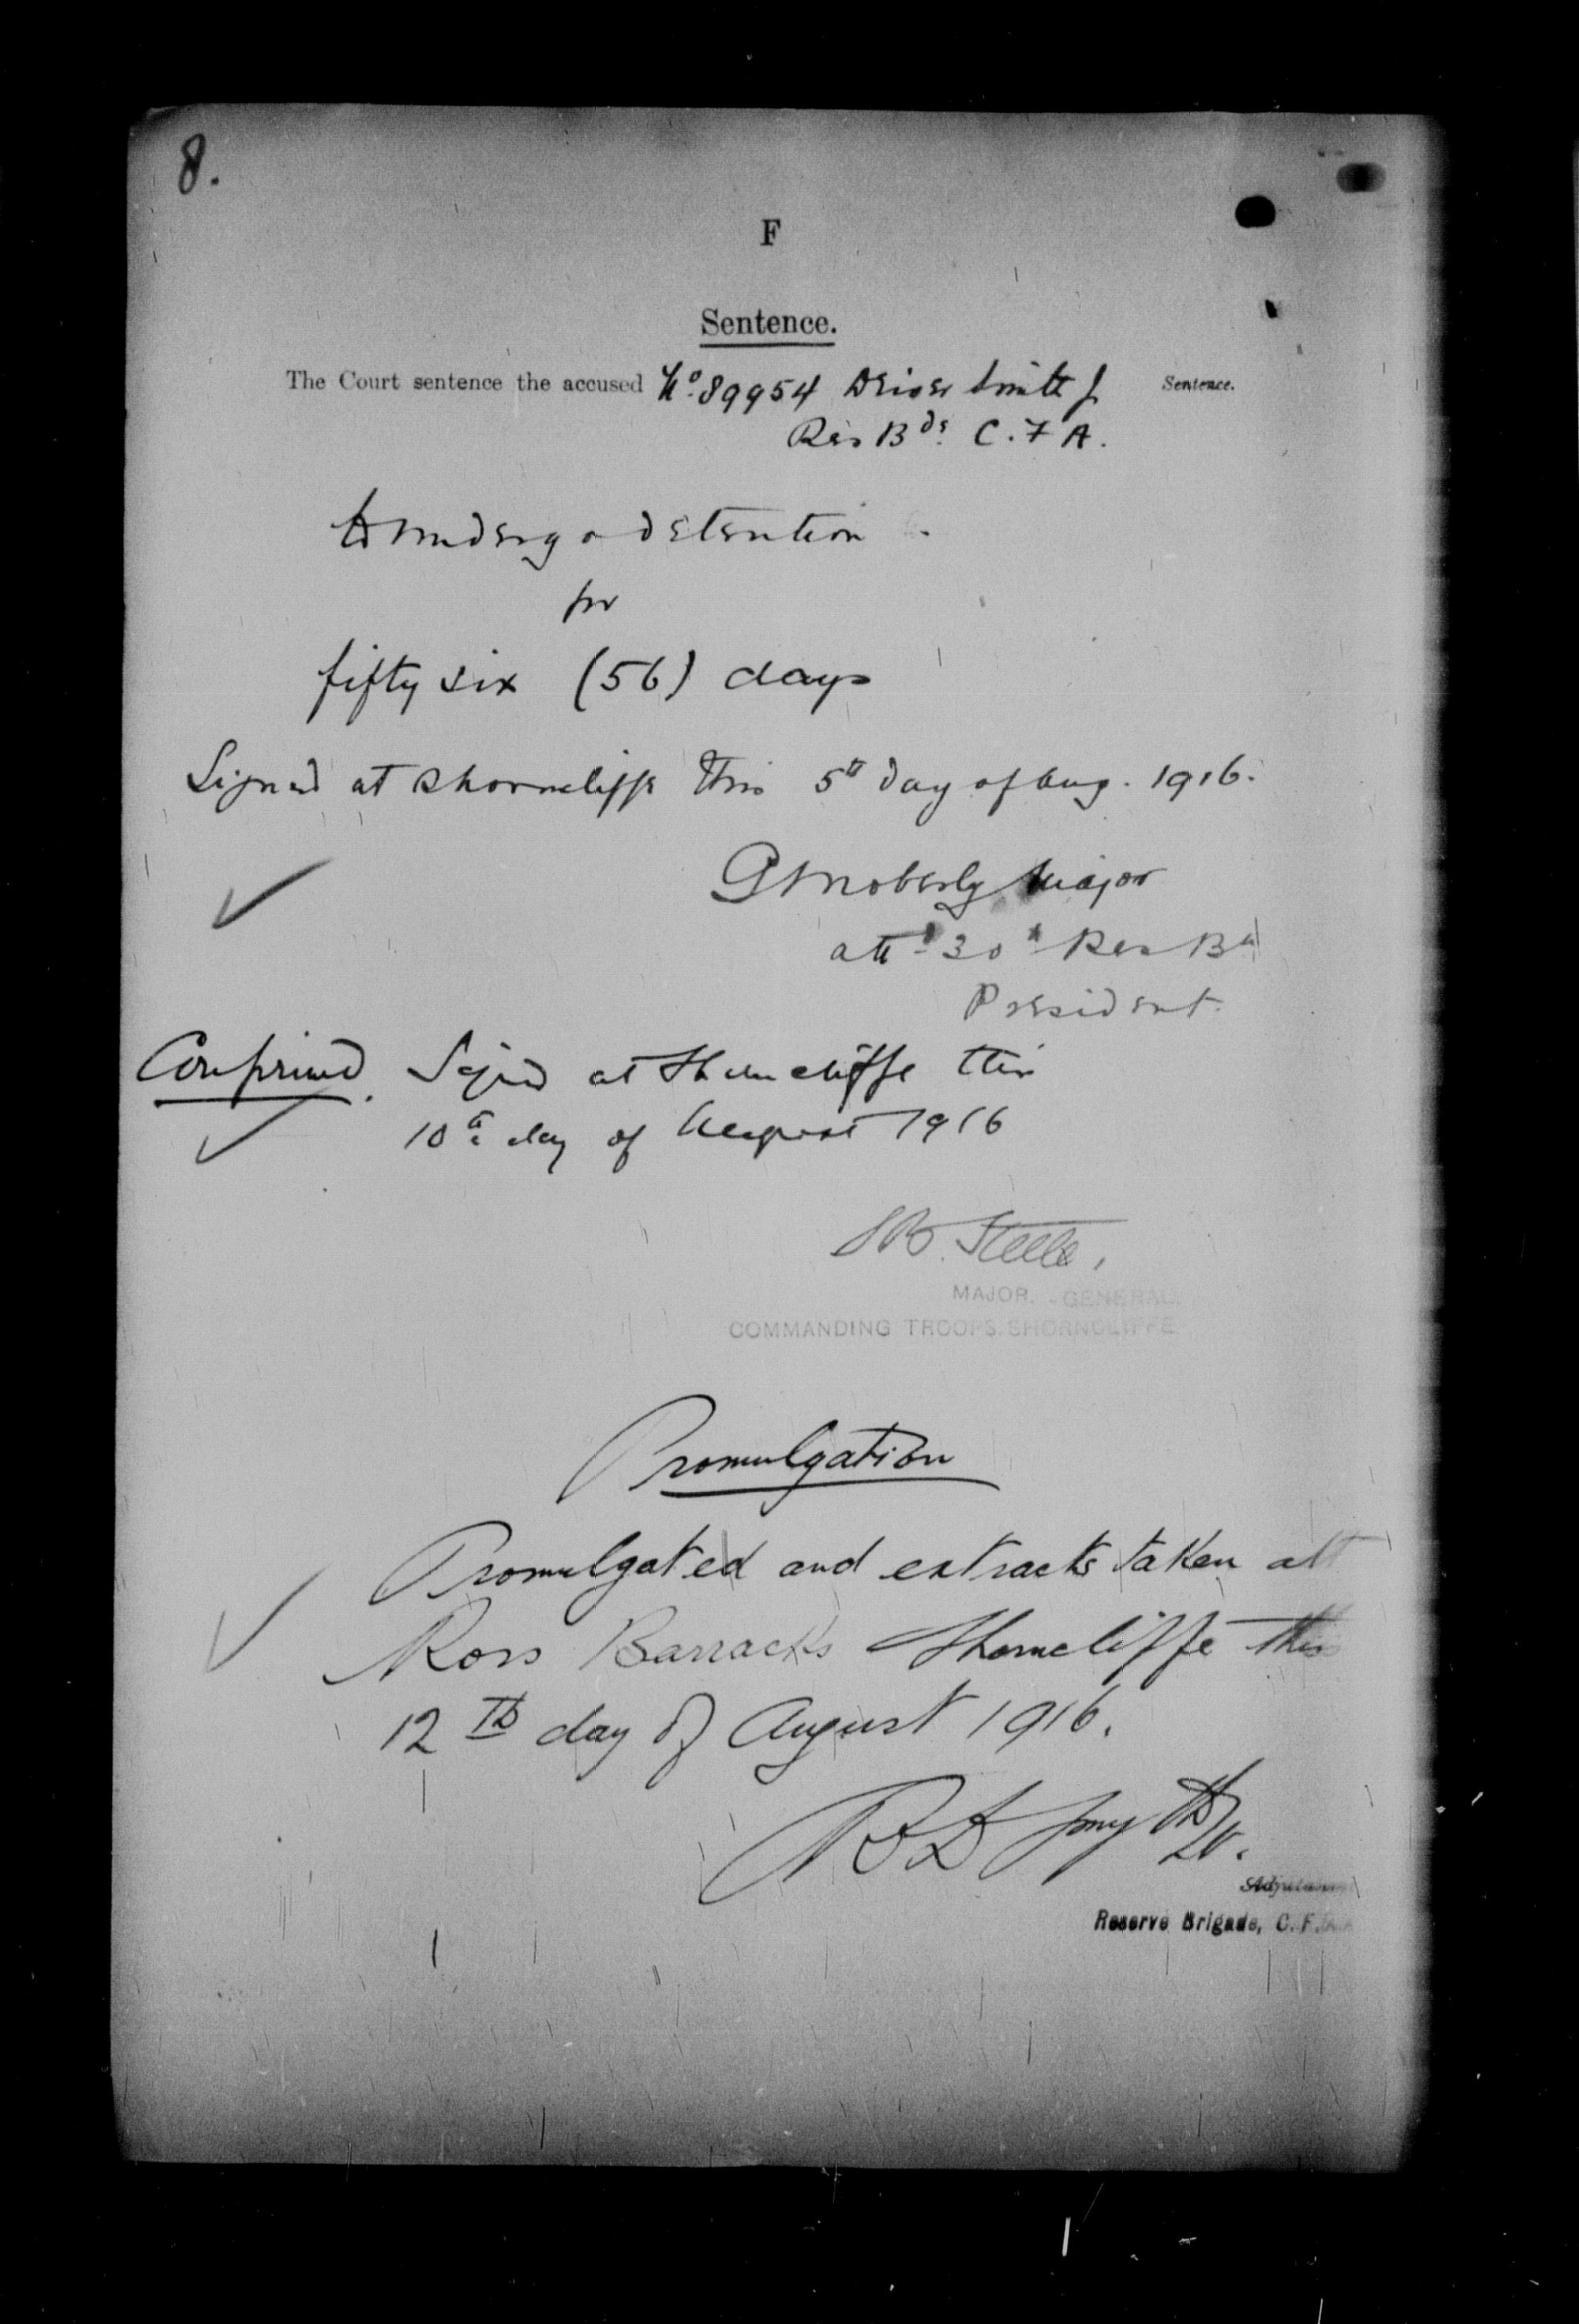 8.
F
Sentence.
The Court sentence the accused No. 89954 Driver Smith J Sentence.
Res Bde. C.F.A.
to undergo detention.
for
fifty six (56) days
Signed at Shorncliffe this 5th day of Aug. 1916.
Moberly Major
attd 30th Res Bn
President.
Confirmed. Signed at Shorncliffe this
10th day of August 1916
S B. Steele,
MAJOR. - GENERAL.
COMMANDING TROOPS. SHORNCLIFFE
Promulgation
Promulgated and extracts taken at
Ross Barracks Shorncliffe this
12th day of August 1916.
Smyth Lt.
Adjutant
Reserve Brigade, C. F. A.